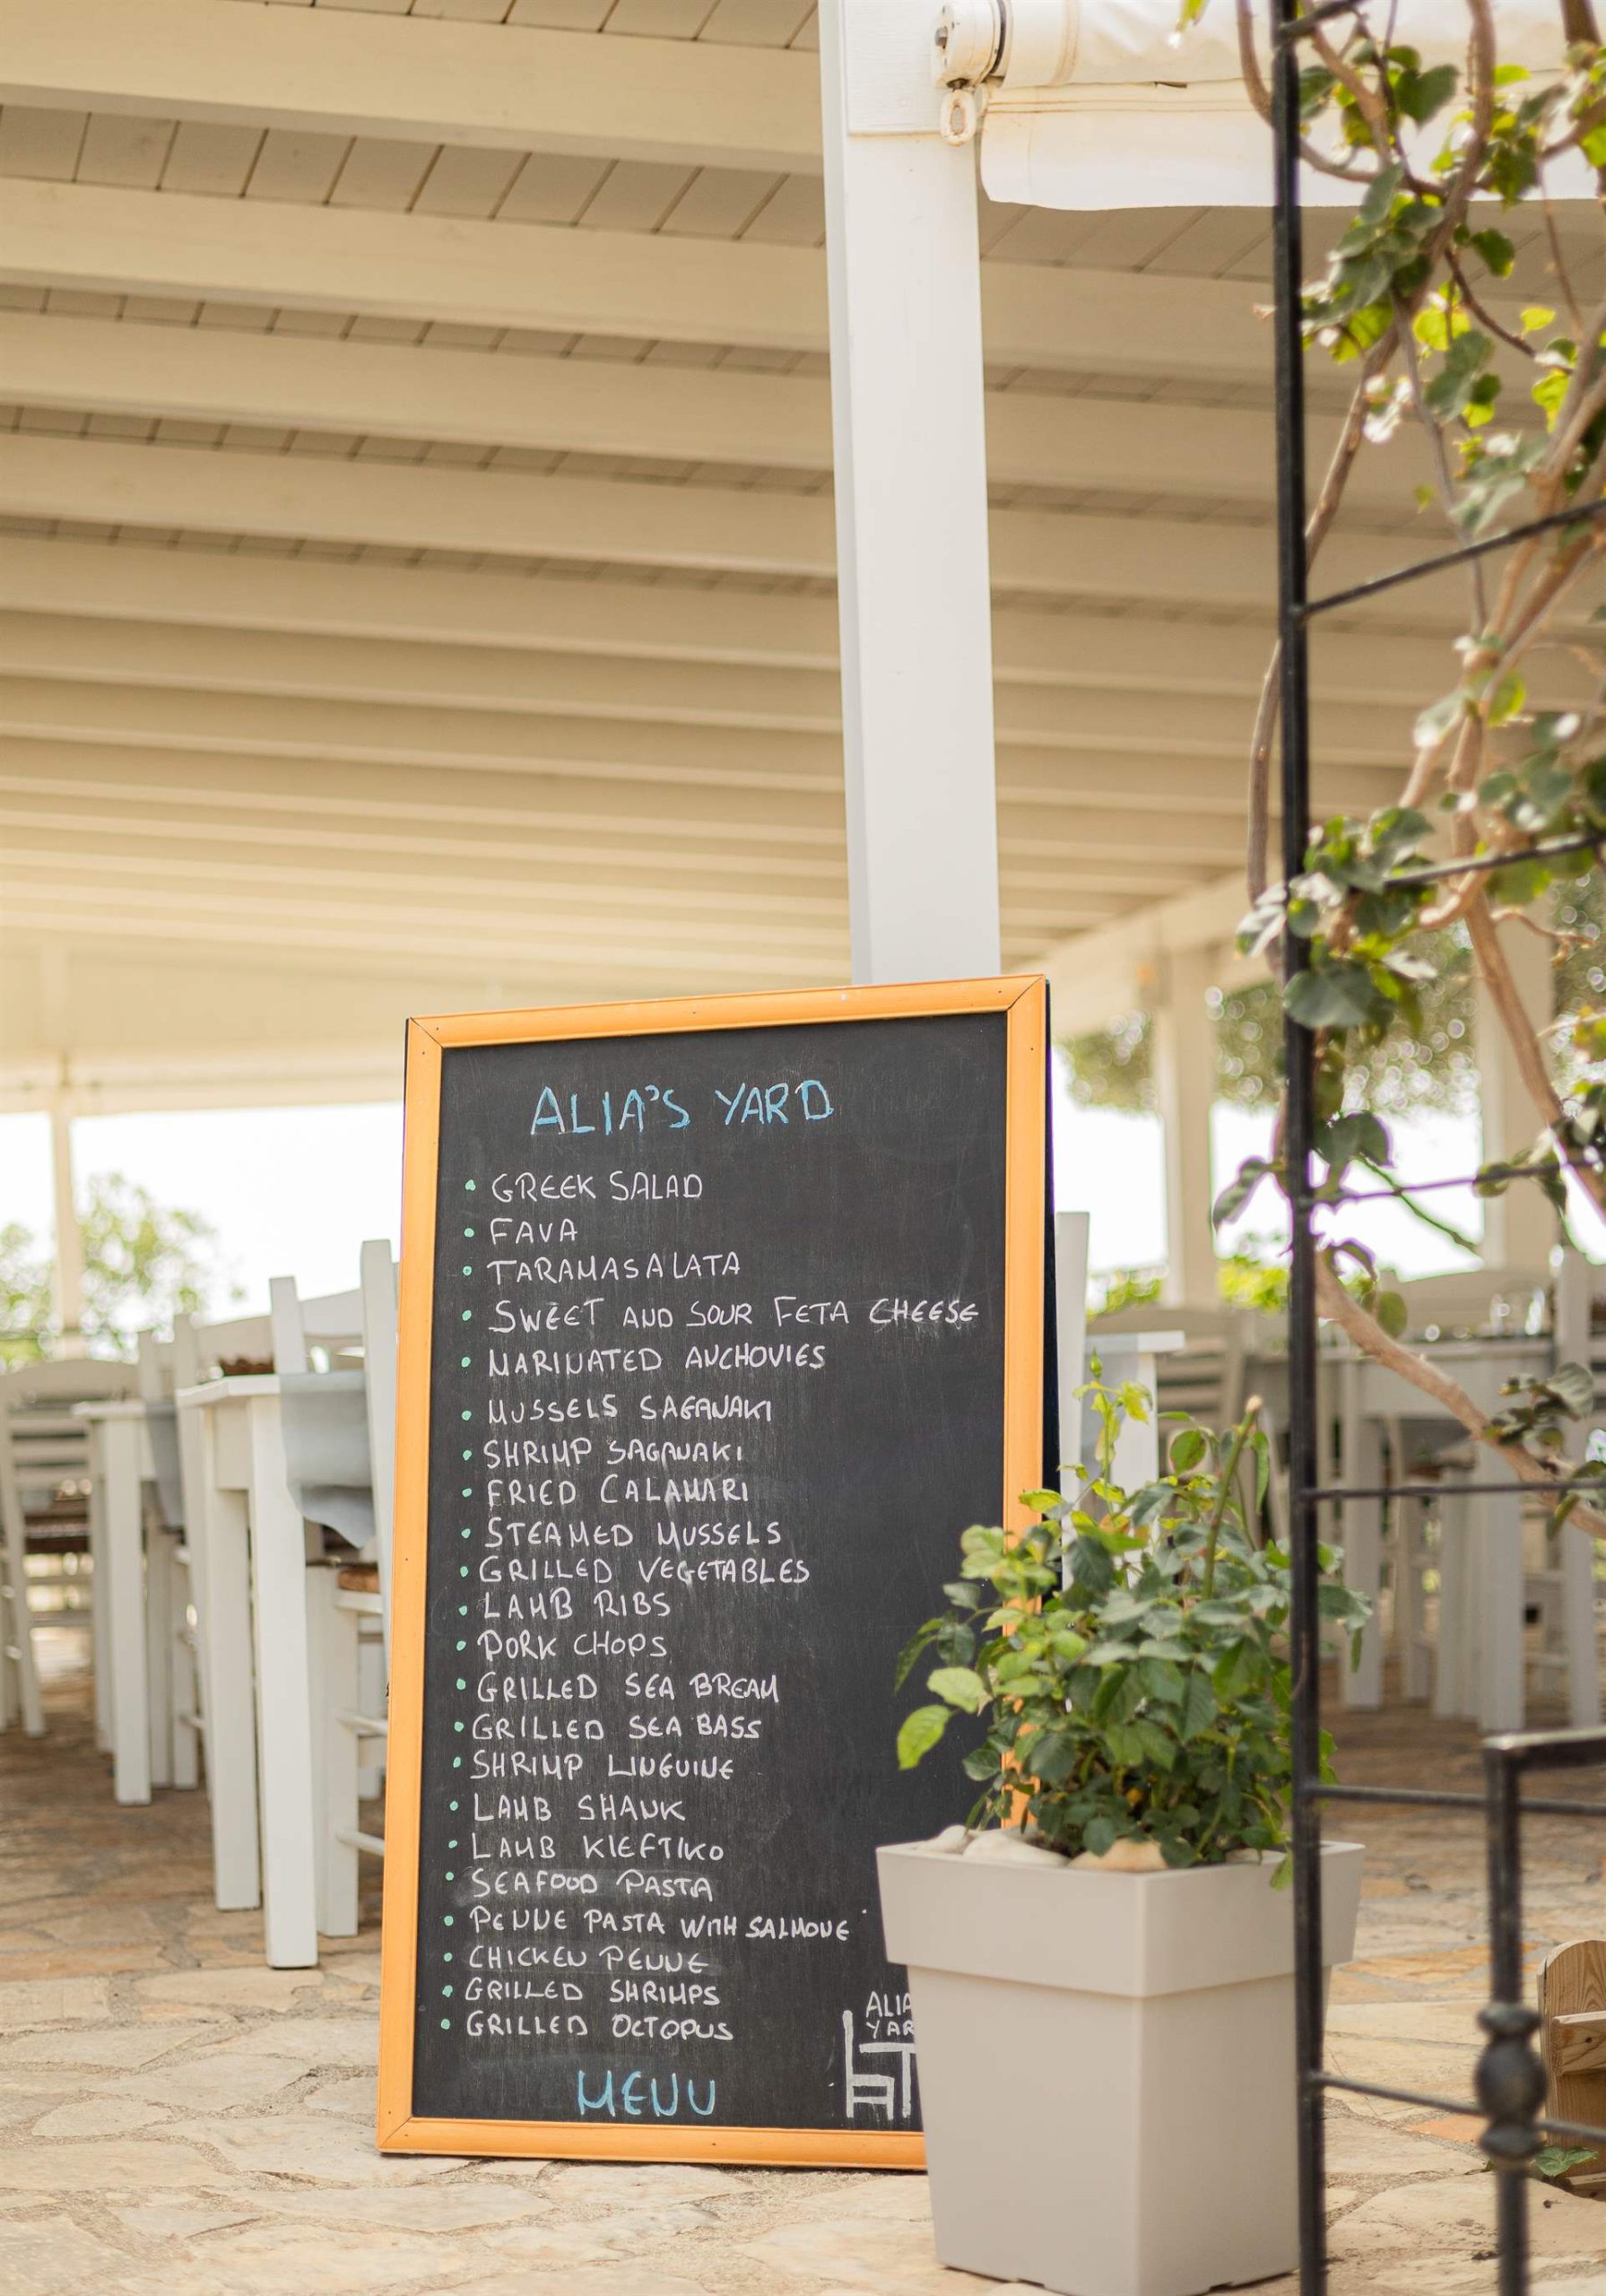 ALIA'S YARD
• GREEK SALAD
• FAVA
• TARAMASALATA
• SWEET AND SOUR FETA CHEESE
• MARINATED ANCHOVIES
• MUSSELS SAGANAKI
• SHRIMP SAGANAKI
• FRIED CALAMARI
• STEAMED MUSSELS
• GRILLED VEGETABLES
• LAMB RIBS
• PORK CHOPS
• GRILLED SEA BREAM
• GRILLED SEA BASS
• SHRIMP LINGUINE
• LAMB SHANK
• LAMB KLEFTIKO
• SEAFOOD PASTA
• PENNE PASTA WITH SALMONE
• CHICKEN PENNE
• GRILLED SHRIMPS
• GRILLED OCTOPUS
ALIA
YAR
MENU